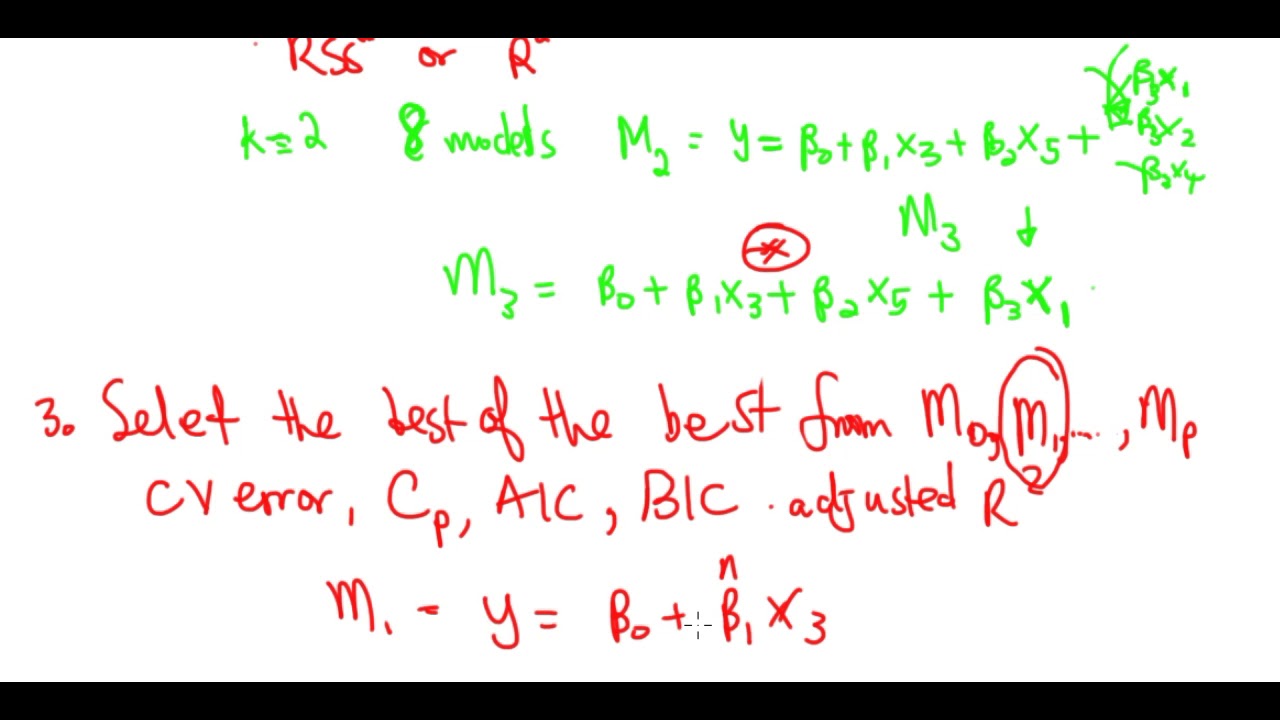 RSS or R
k=2 8 models M₂ = y = β₀+β₁x₃+β₂x₅+
β₃x₁
β₃x₂
β₂x₄
M₃ ↓
M₃ = β₀+β₁x₃+β₂x₅+β₃x₁
3. Selet the best of the best from M₀, M₁..., Mₚ
CV error, Cₚ, AIC, BIC . adjusted R²
M₁ = y = β₀+β₁x₃